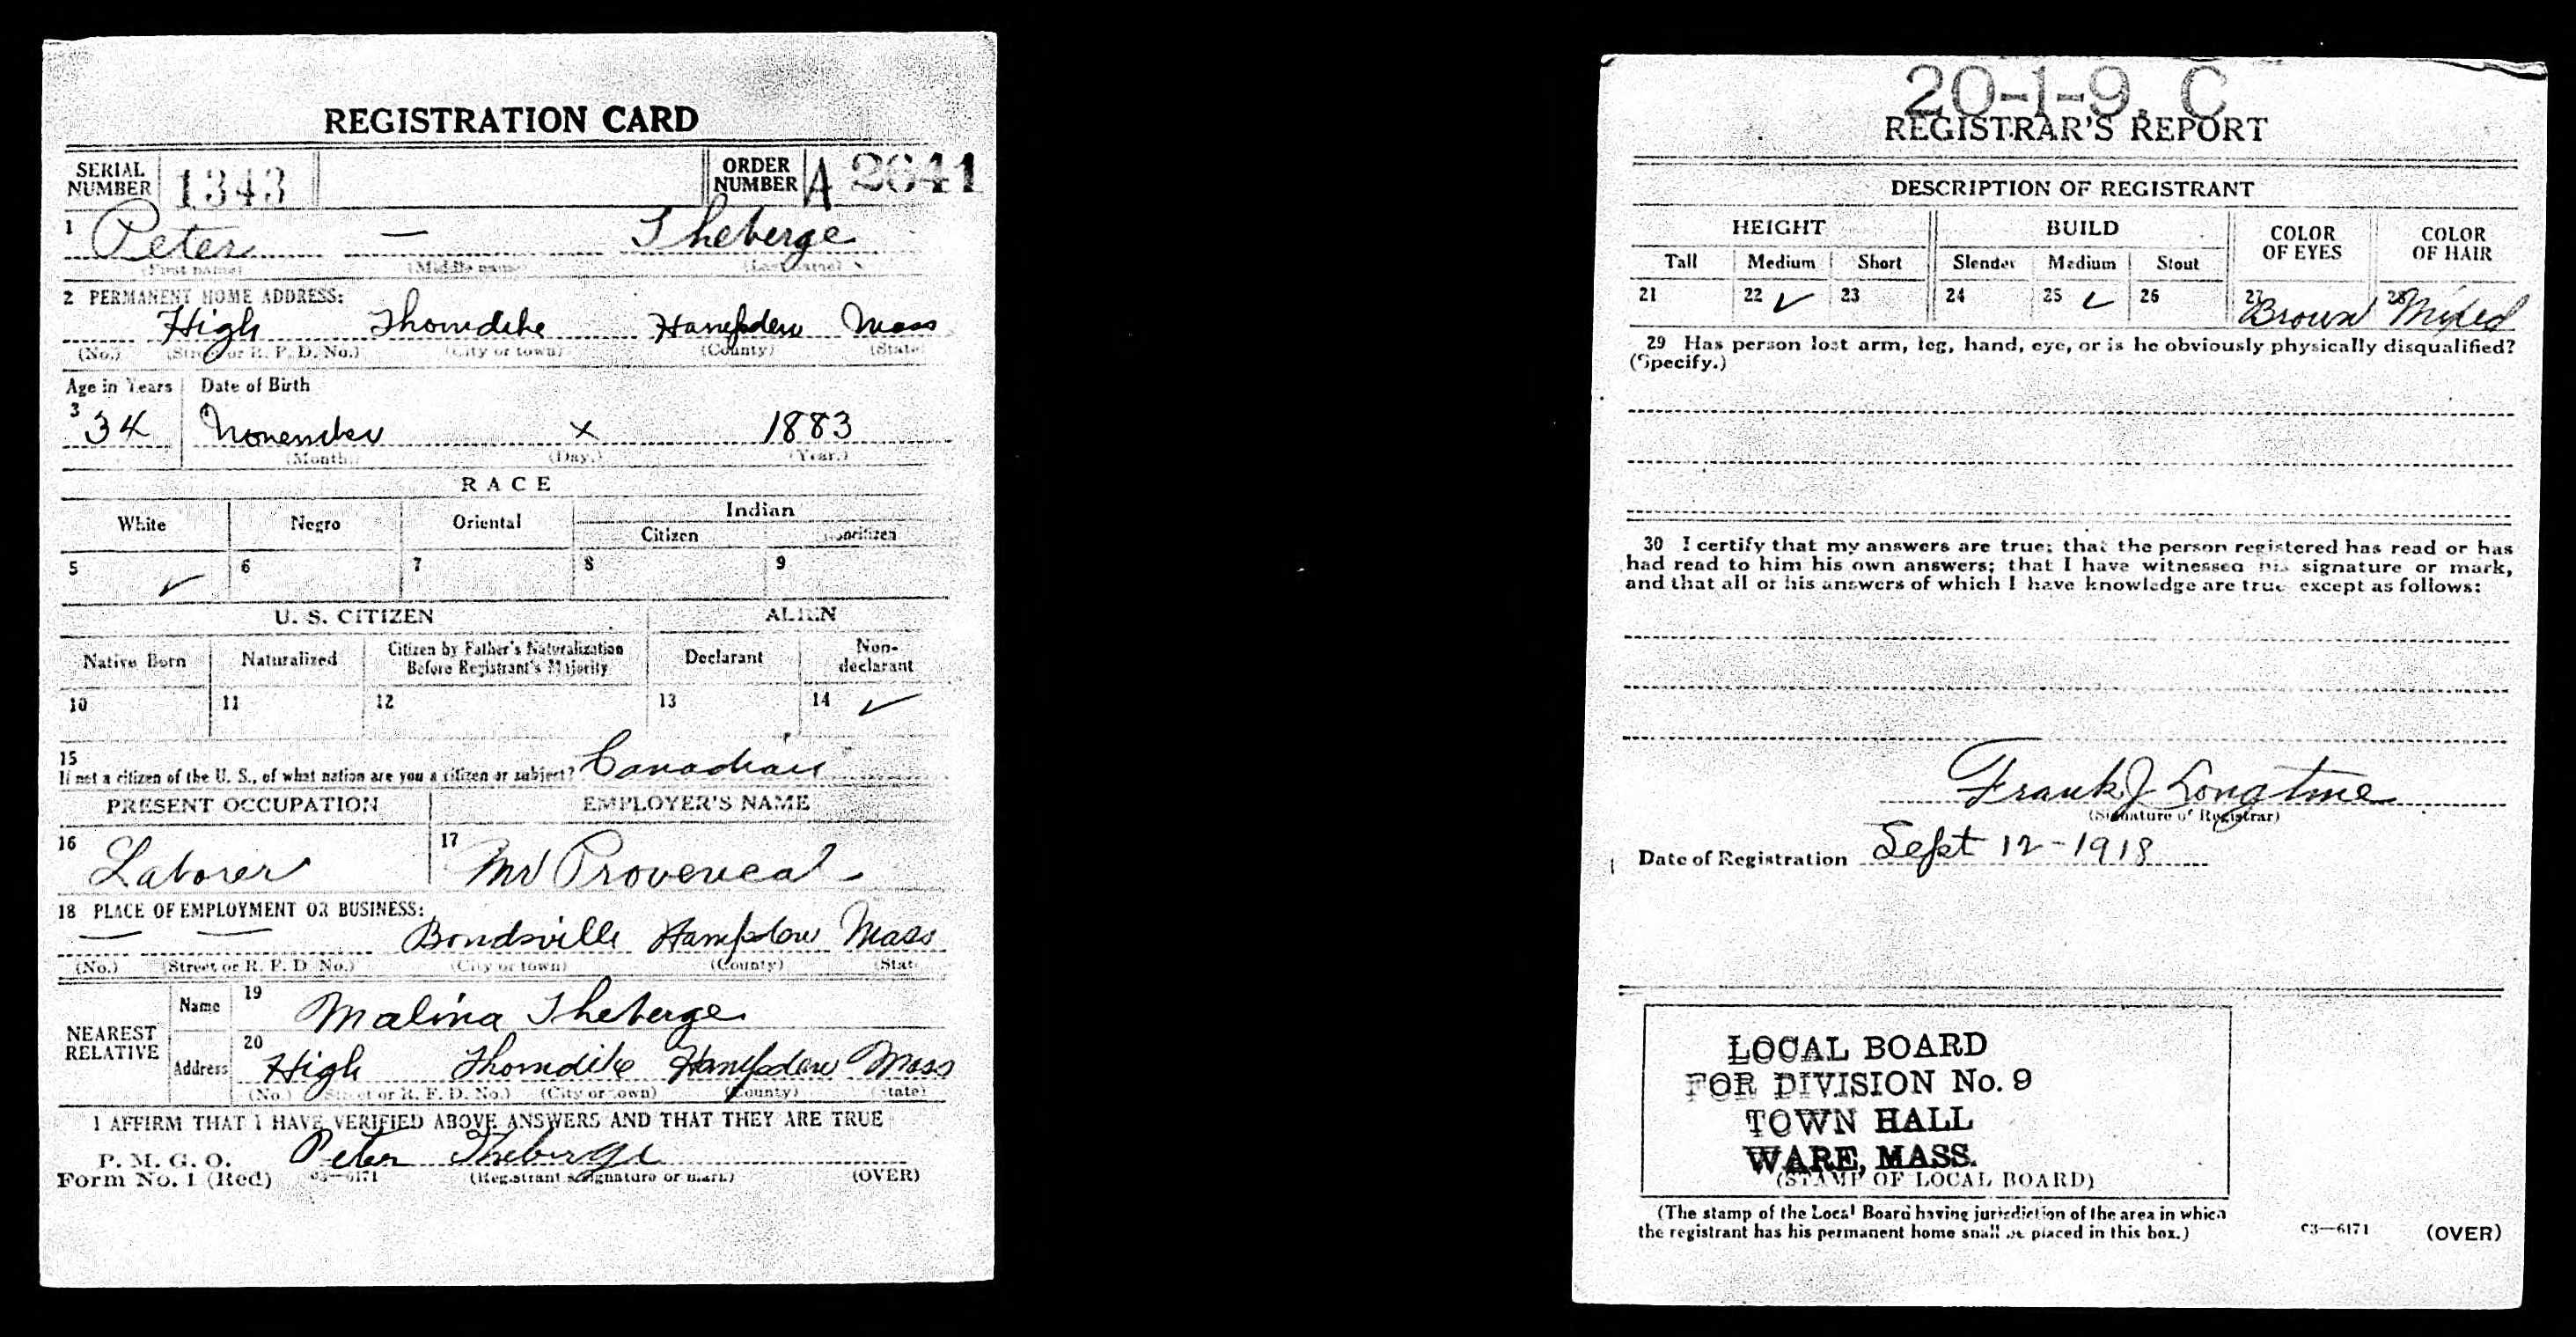 REGISTRATION CARD
SERIAL NUMBER 1343 ORDER NUMBER A 2641
1 Peter — Theberge
(First name) (Middle name) (Last name)
2 PERMANENT HOME ADDRESS:
High Thorndike Hampden Mass
(No.) (Street or R. F. D. No.) (City or town) (County) (State)
Age in Years Date of Birth
3 34 4 November x 1883
(Month.) (Day.) (Year.)
RACE
White Negro Oriental Indian
Citizen Noncitizen
5 ✓ 6 7 8 9
U. S. CITIZEN ALIEN
Native Born Naturalized Citizen by Father's Naturalization Before Registrant's Majority Declarant Non-declarant
10 11 12 13 14 ✓
15
If not a citizen of the U. S., of what nation are you a citizen or subject? Canadian
PRESENT OCCUPATION EMPLOYER'S NAME
16 Laborer 17 Mr Provencal
18 PLACE OF EMPLOYMENT OR BUSINESS:
— — Bondsville Hampden Mass
(No.) (Street or R. F. D. No.) (City or town) (County) (State)
NEAREST RELATIVE
Name 19 Malina Theberge
Address 20 High Thorndike Hampden Mass
(No.) (Street or R. F. D. No.) (City or town) (County) (State)
I AFFIRM THAT I HAVE VERIFIED ABOVE ANSWERS AND THAT THEY ARE TRUE
P. M. G. O.
Form No. 1 (Red) Peter Theberge
03—6171 (Registrant's signature or mark) (OVER)
20-1-9. C
REGISTRAR'S REPORT
DESCRIPTION OF REGISTRANT
HEIGHT BUILD COLOR OF EYES COLOR OF HAIR
Tall Medium Short Slender Medium Stout
21 22 ✓ 23 24 25 ✓ 26 27 Brown 28 Mixed
29 Has person lost arm, leg, hand, eye, or is he obviously physically disqualified?
(Specify.)
30 I certify that my answers are true; that the person registered has read or has
had read to him his own answers; that I have witnessed his signature or mark,
and that all of his answers of which I have knowledge are true except as follows:
Frank J Longtine
(Signature of Registrar)
Date of Registration Sept 12-1918
LOCAL BOARD
FOR DIVISION No. 9
TOWN HALL
WARE, MASS.
(STAMP OF LOCAL BOARD)
(The stamp of the Local Board having jurisdiction of the area in which
the registrant has his permanent home shall be placed in this box.)
03—6171 (OVER)